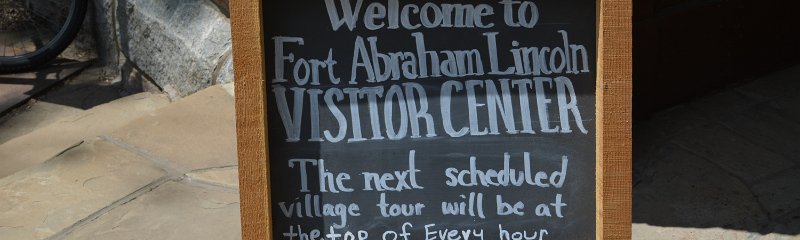 Welcome to
Fort Abraham Lincoln
VISITOR CENTER
The next scheduled
village tour will be at
the top of Every hour